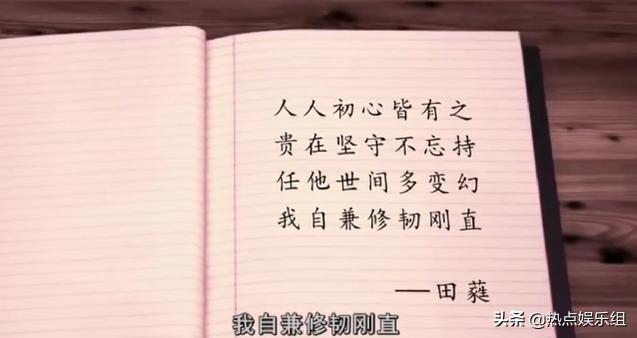 人人初心皆有之
贵在坚守不忘持
任他世间多变幻
我自兼修韧刚直
——田蕤
我自兼修韧刚直
头条 @热点娱乐组